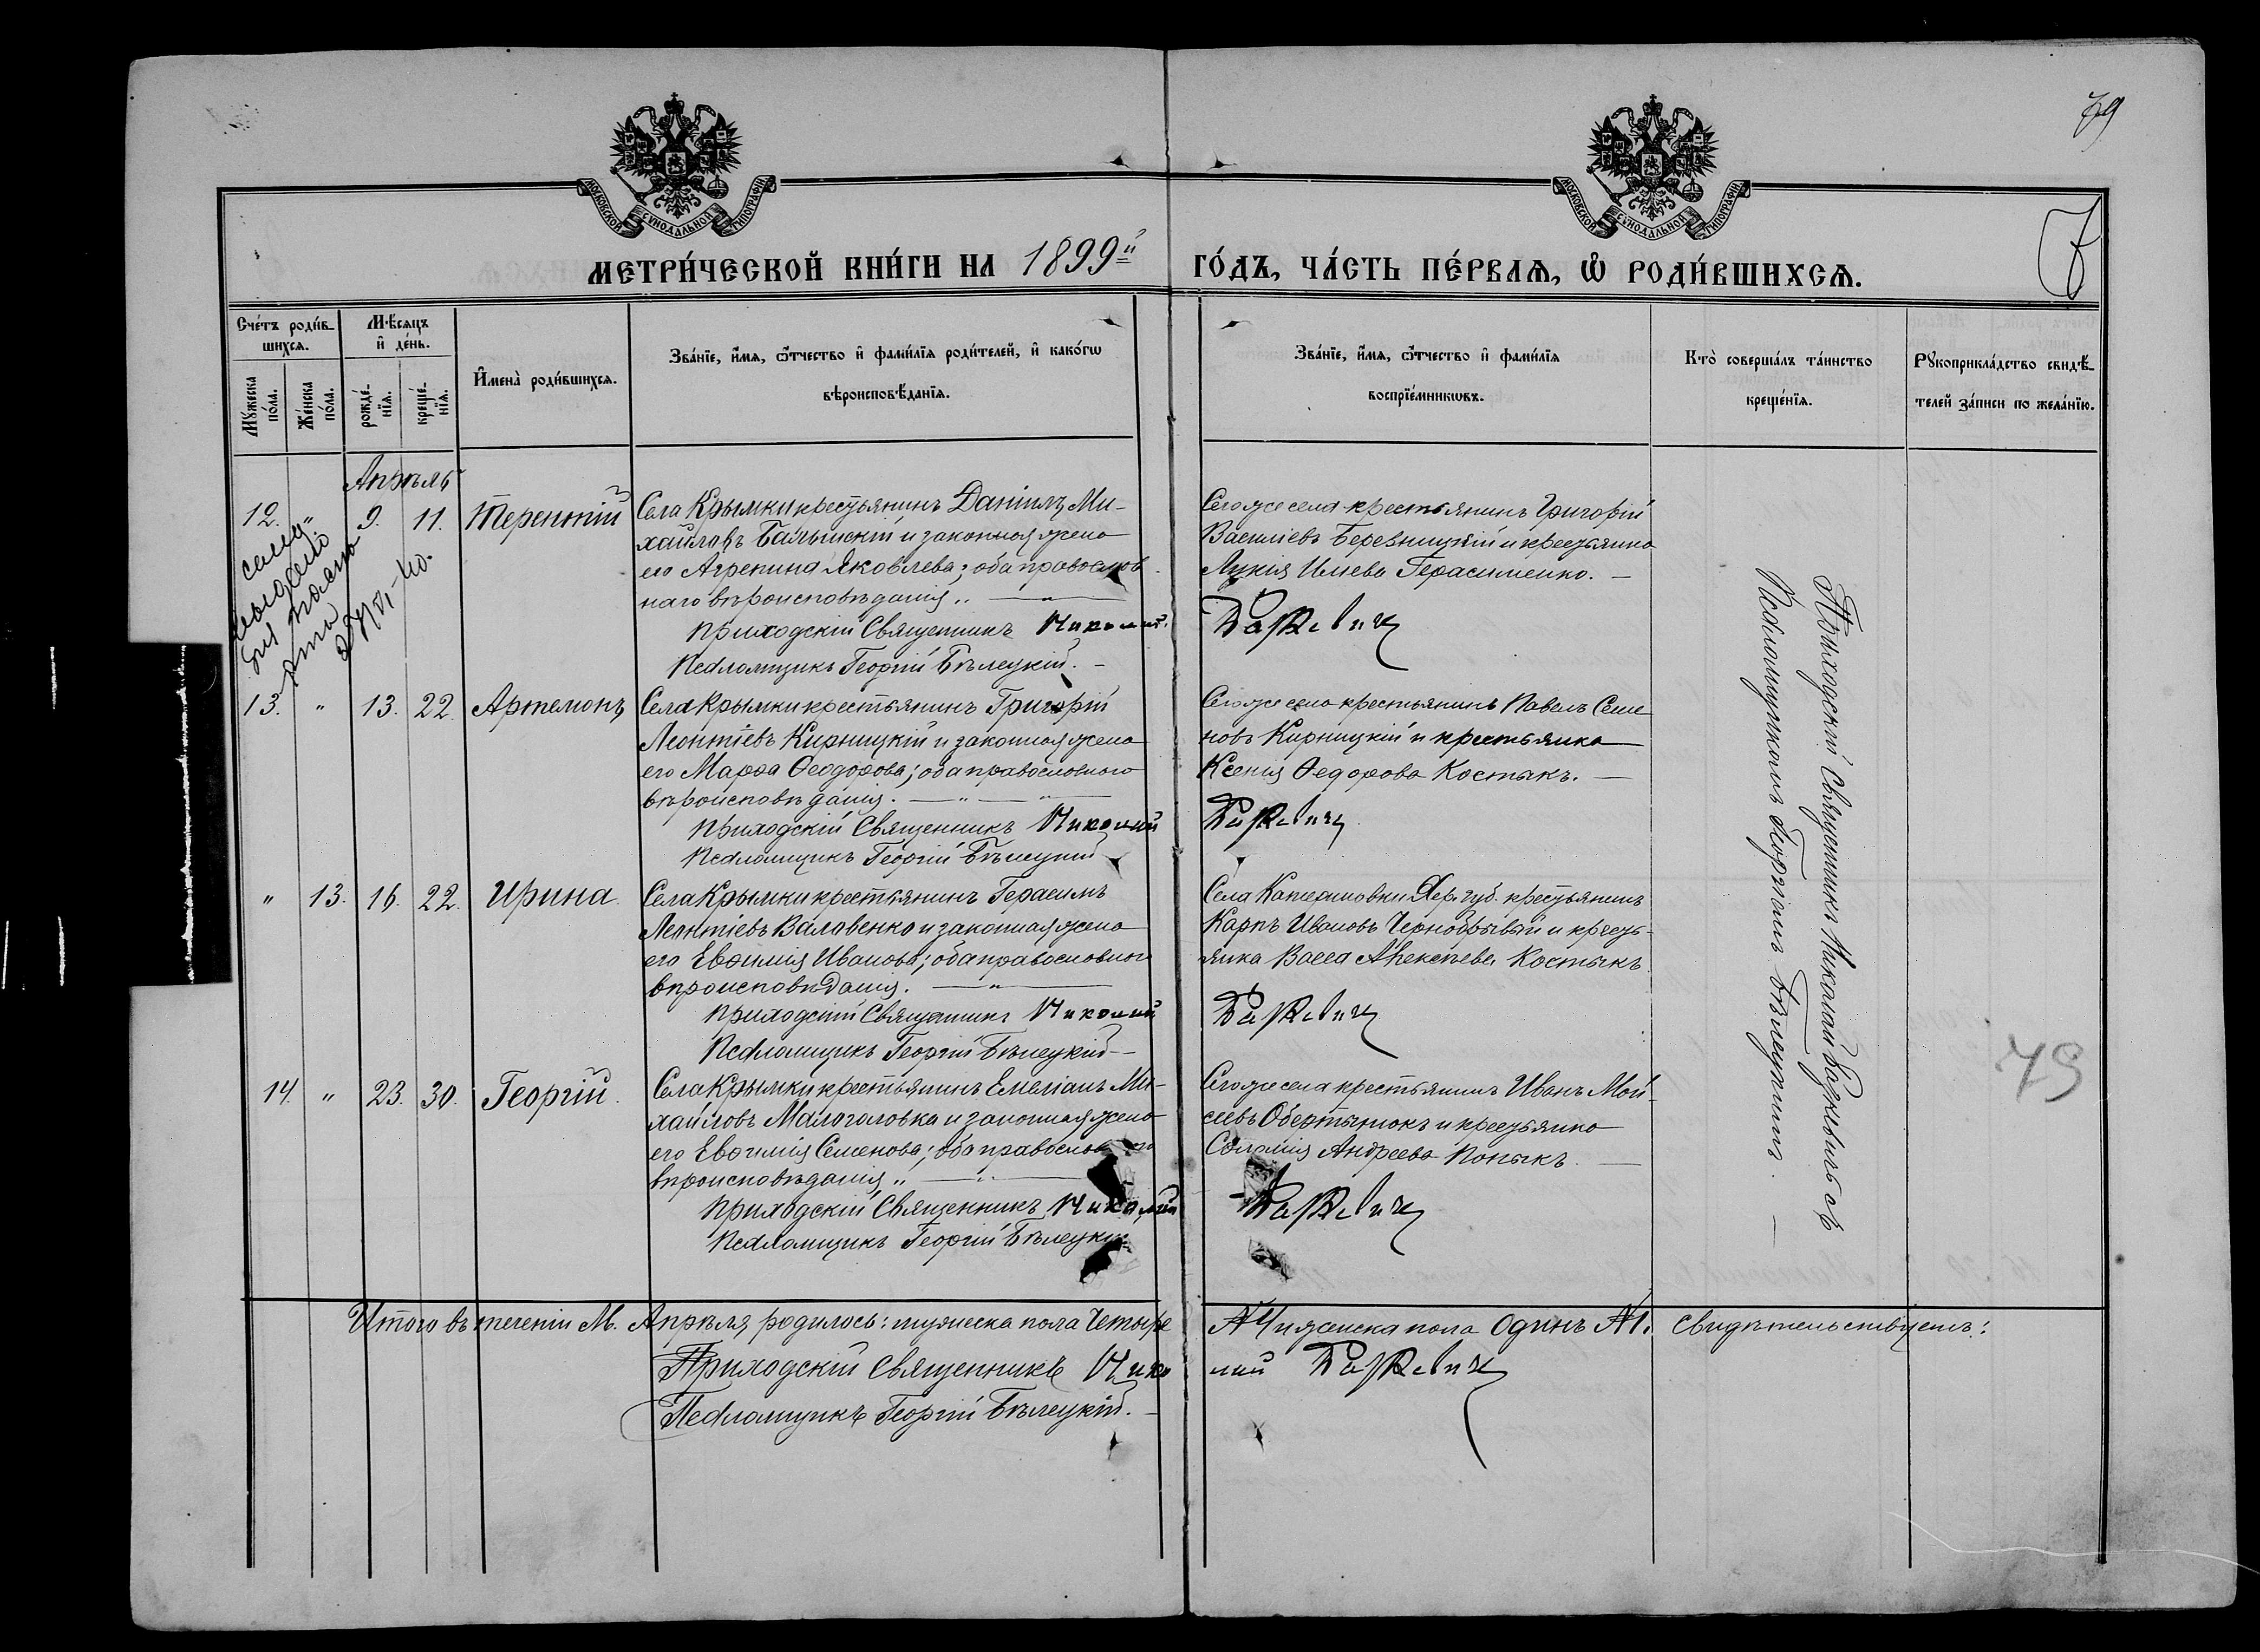 79
МОСКОВСКОЙ СѴНОДАЛЬНОЙ ТИПОГРАФІИ
МОСКОВСКОЙ СѴНОДАЛЬНОЙ ТИПОГРАФІИ
МЕТРИ́ЧЕСКОЙ КНИ́ГИ НА 1899й ГО́ДЪ, ЧА́СТЬ ПЕ́РВАЯ, Ѽ РОДИ́ВШИХСЯ.
7
Сче́тъ роди́в-
шихся.
Мѣ́сяцъ
и де́нь.
Му́жеска по́ла.
Же́нска по́ла.
рожде́-нїя.
креще́-нїя.
И҆мена̀ роди́вшихся.
Зва́нїе, и҆́мя, ѻ҆́тчество и҆ фами́лїя роди́телей, и҆ како́гѡ
вѣроисповѣ́данїя.
Зва́нїе, и҆́мя, ѻ҆́тчество и҆ фами́лїя
воспрїе́мникѡвъ.
Кто̀ соверша́лъ та́инство
креще́нїя.
Рꙋкоприкла́дство свидѣ́-
телей за́писи по жела́нїю.
Апрѣль
12. " 9. 11. Терентій
Села Крымки крестьянинъ Даніилъ Ми-
хайловъ и законная жена
его Агрепина Яковлева; оба православ-
наго вѣроисповѣданія „
Приходскій Священникъ Николай
Псаломщикъ Георгій Бѣлецкій. -
Сего же села крестьянинъ Григорій
Василіевъ Березницкій и крестьянка
Лукія Иліева Герасименко. -
13. " 13. 22. Артемонъ
Села Крымки крестьянинъ Григорій
Леонтіевъ Кирницкій и законная жена
его Марѳа Ѳеодорова; оба православнаго
вѣроисповѣданія.
Приходскій Священникъ Николай
Псаломщикъ Георгій Бѣлецкій
Сего же села крестьянинъ Павелъ Семе-
новъ Кирницкій и крестьянка
Ксенія Ѳедорова Костыкъ. -
" 13. 16. 22. Ирина.
Села Крымки крестьянинъ Герасимъ
Леонтіевъ Валовенко и законная жена
его Евѳимія Иванова; оба православнаго
вѣроисповѣданія.
Приходскій Священникъ Николай
Псаломщикъ Георгій Бѣлецкій -
Села Хер. губ. крестьянинъ
Карпъ Ивановъ Чернобрывый и кресть-
янка Васса Алексѣева Костыкъ
14. " 23. 30. Георгій.
Села Крымки крестьянинъ Емеліанъ Ми-
хайловъ Малоголовка и законная жена
его Евѳимія Семенова; оба православнаго
вѣроисповѣданія „
Приходскій Священникъ Николай
Псаломщикъ Георгій Бѣлецкій
Сего же села крестьянинъ Иванъ Мой-
сеевъ и крестьянка
Соломія Андреева Попыкъ.
Приходскій Священникъ Николай съ
Псаломщикомъ Георгіемъ Бѣлецкимъ.
79
Итого въ теченіи М. Апрѣля родилось: мужеска пола Четыре №4 и женска пола Одинъ №1. Свидѣтельствуемъ:
Приходскій Священникъ Николай
Псаломщикъ Георгій Бѣлецкій. -